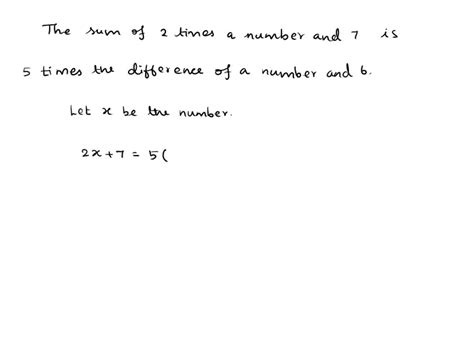 The sum of 2 times a number and 7 is
5 times the difference of a number and 6.
Let x be the number.
2x+7 = 5(